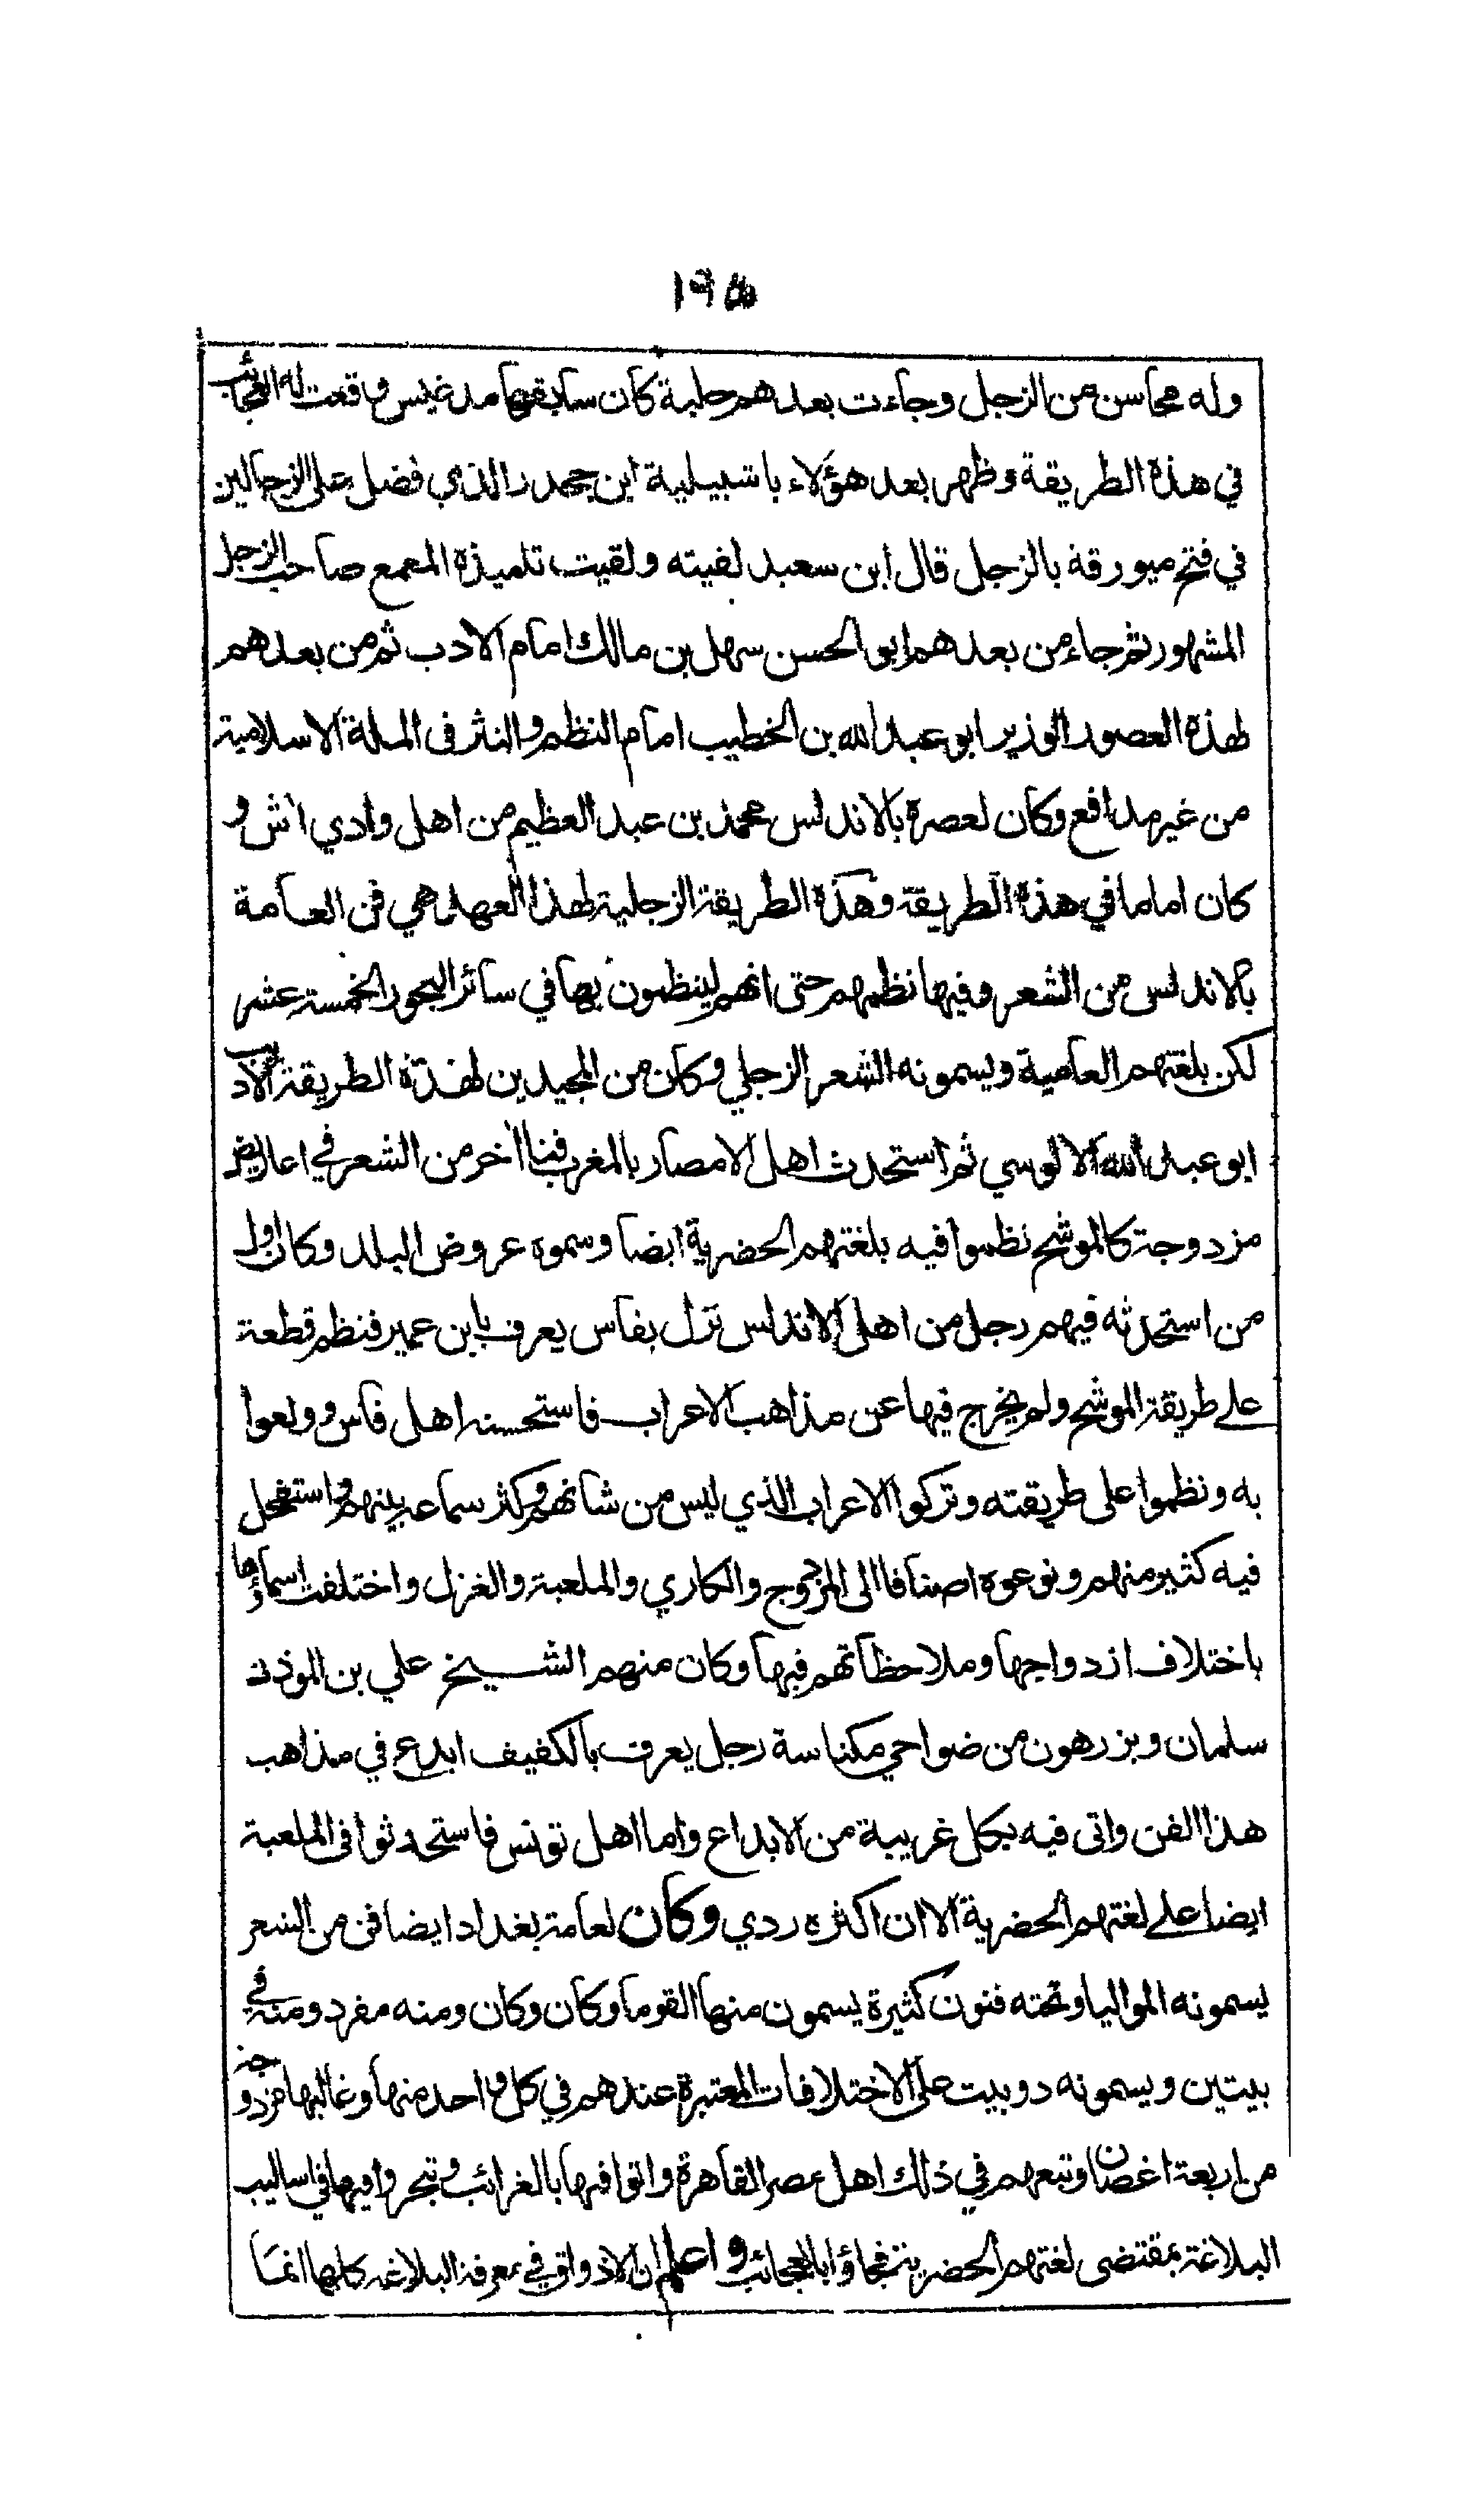 ١٩٥
وله محاسن من الزجل وجاءت بعدهم حلبة كان سابقها مدغيس وقعت له العجائب
في هذه الطريقة وظهر بعد هؤلاء باشبيلية ابن جحدر الذي فضل على الزجالين
في فتح ميورقة بالزجل قال ابن سعيد لقيته ولقيت تلميذه المعمع صاحب الزجل
المشهور ثم جاء من بعدهم ابو الحسن سهل بن مالك امام الادب ثم من بعدهم
لهذه العصور الوزير ابو عبد الله بن الخطيب امام النظم والنثر في الملة الاسلامية
من غير مدافع وكان لعصره بالاندلس محمد بن عبد العظيم من اهل وادي اش و
كان اماما في هذه الطريقة وهذه الطريقة الزجلية لهذا العهد هي فن العامة
بالاندلس من الشعر وفيها نظمهم حتى انهم لينظمون بها في سائر البحور الخمسة عشر
لكن بلغتهم العامية ويسمونه الشعر الزجلي وكان من المجيدين لهذه الطريقة الاديب
ابو عبد الله الالوسي ثم استحدث اهل الامصار بالمغرب فنا اخر من الشعر في اعاريض
مزدوجة كالموشح نظموا فيه بلغتهم الحضرية ايضا وسموه عروض البلد وكان اول
من استحدثه فيهم رجل من اهل الاندلس نزل بفاس يعرف بابن عمير فنظم قطعة
على طريقة الموشح ولم يخرج فيها عن مذاهب الاعراب فاستحسنه اهل فاس وولعوا
به ونظموا على طريقته وتركوا الاعراب الذي ليس من شانهم وكثر سماعه بينهم واستفحل
فيه كثير منهم ونوعوه اصنافا الى المزدوج والكاري والملعبة والغزل واختلفت اسماؤها
باختلاف ازدواجها وملاحظاتهم فيها وكان منهم الشيخ علي بن الموذن
سلمان وبزرهون من ضواحي مكناسة رجل يعرف بالكفيف ابدع في مذاهب
هذا الفن واتى فيه بكل غريبة من الابداع واما اهل تونس فاستحدثوا في الملعبة
ايضا على لغتهم الحضرية الا ان اكثره ردي وكان لعامة بغداد ايضا فن من الشعر
يسمونه المواليا وتحته فنون كثيرة يسمون منها القوما وكان وكان ومنه مفرد ومنه في
بيتين ويسمونه دوبيت على الاختلافات المعتبرة عندهم في كل واحد منها وغالبها مزدوجة
من اربعة اغصان وتبعهم في ذلك اهل عصر القاهرة واتوا فيها بالغرائب وتبحروا فيها في اساليب
البلاغة بمقتضى لغتهم الحضرية فجاؤا بالعجائب واعلم ان الاذواق في معرفة البلاغة كلها انما